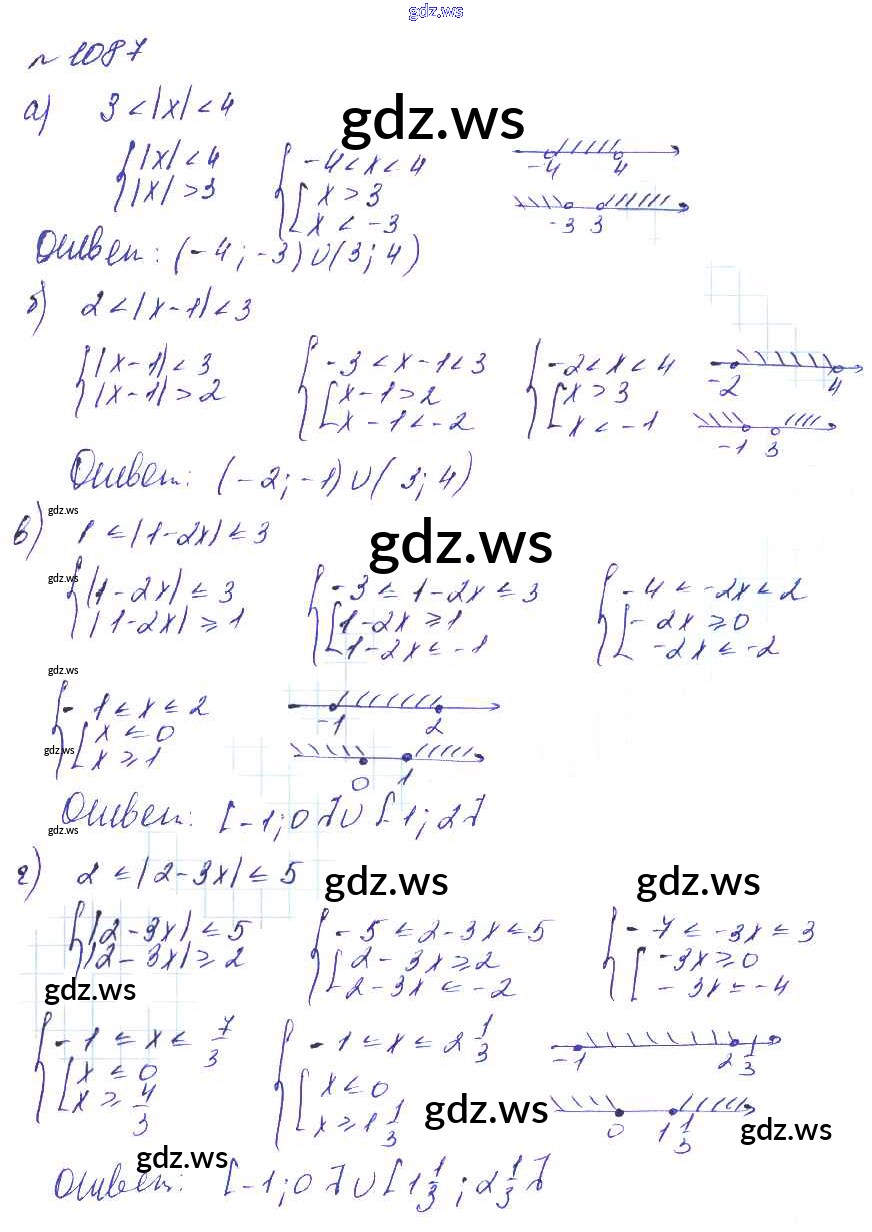 gdz.ws
№ 1087
а) 3 < |x| < 4
gdz.ws
{ |x| < 4   { -4 < x < 4
{ |x| > 3   { [ x > 3
[ x < -3
-4 4
-3 3
Ответ: (-4; -3) ∪ (3; 4)
б) 2 < |x-1| < 3
{ |x-1| < 3   { -3 < x-1 < 3   { -2 < x < 4
{ |x-1| > 2   { [ x-1 > 2   { [ x > 3
[ x-1 < -2   [ x < -1
-2 4
-1 3
Ответ: (-2; -1) ∪ (3; 4)
gdz.ws
в) 1 ≤ |1-2x| ≤ 3
gdz.ws
gdz.ws
{ |1-2x| ≤ 3   { -3 ≤ 1-2x ≤ 3   { -4 ≤ -2x ≤ 2
{ |1-2x| ≥ 1   { [ 1-2x ≥ 1   { [ -2x ≥ 0
[ 1-2x ≤ -1   [ -2x ≤ -2
gdz.ws
{ -1 ≤ x ≤ 2
{ [ x ≤ 0
[ x ≥ 1
gdz.ws
-1 2
0 1
Ответ: [-1; 0] ∪ [1; 2]
gdz.ws
г) 2 ≤ |2-3x| ≤ 5
gdz.ws gdz.ws
{ |2-3x| ≤ 5   { -5 ≤ 2-3x ≤ 5   { -7 ≤ -3x ≤ 3
{ |2-3x| ≥ 2   { [ 2-3x ≥ 2   { [ -3x ≥ 0
[ 2-3x ≤ -2   [ -3x ≤ -4
gdz.ws
{ -1 ≤ x ≤ 7/3   { -1 ≤ x ≤ 2 1/3
{ [ x ≤ 0   { [ x ≤ 0
[ x ≥ 4/3   [ x ≥ 1 1/3
-1 2 1/3
0 1 1/3
gdz.ws
gdz.ws
gdz.ws
Ответ: [-1; 0] ∪ [1 1/3; 2 1/3]